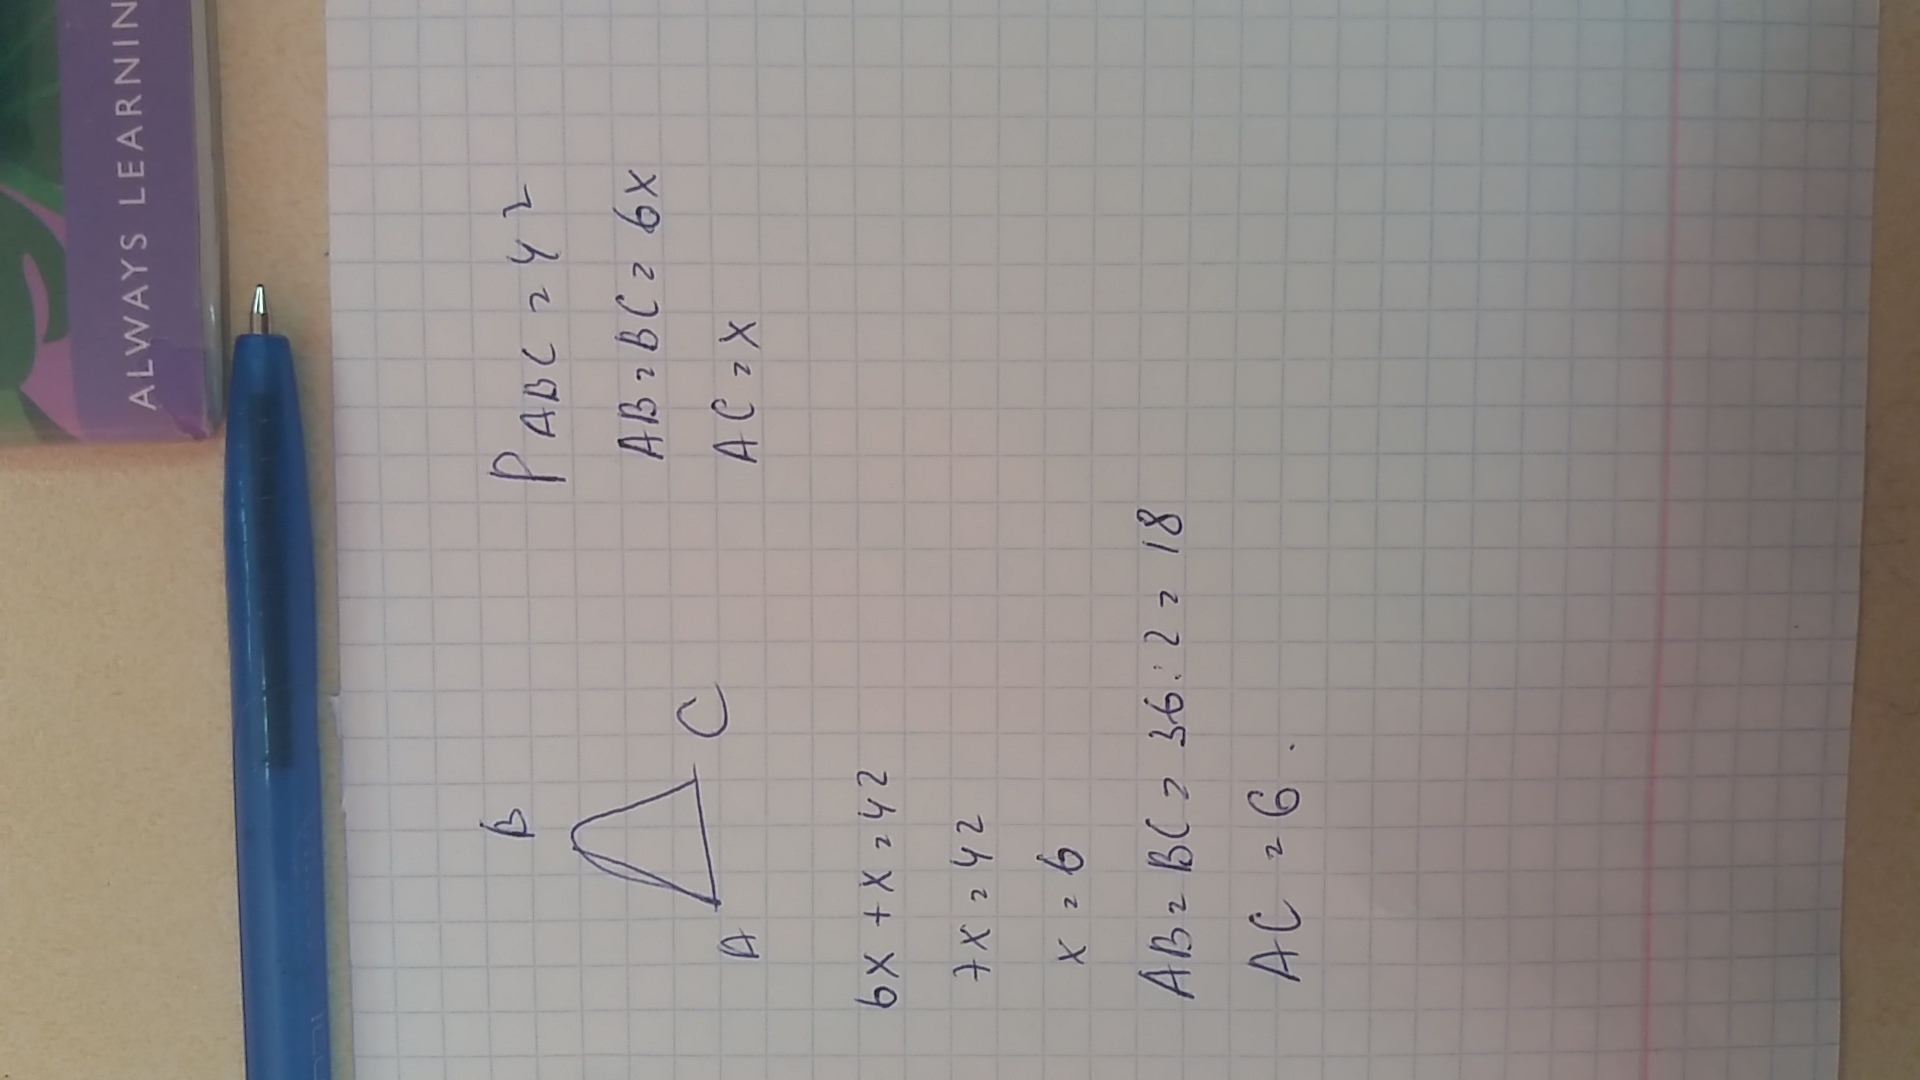 ALWAYS LEARNIN
P ABC = 42
AB = BC = 6x
AC = x
B
A
C
6x + x = 42
7x = 42
x = 6
AB = BC = 36 : 2 = 18
AC = 6.